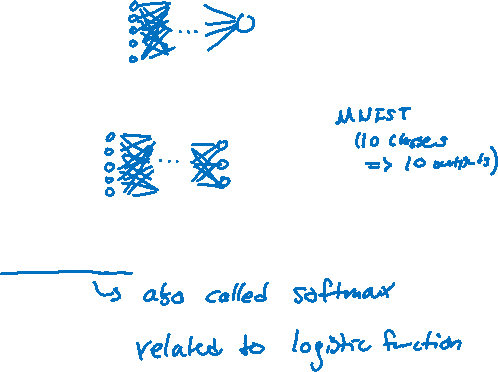 MNIST
(10 classes
=> 10 outputs)
↳ also called softmax
related to logistic function